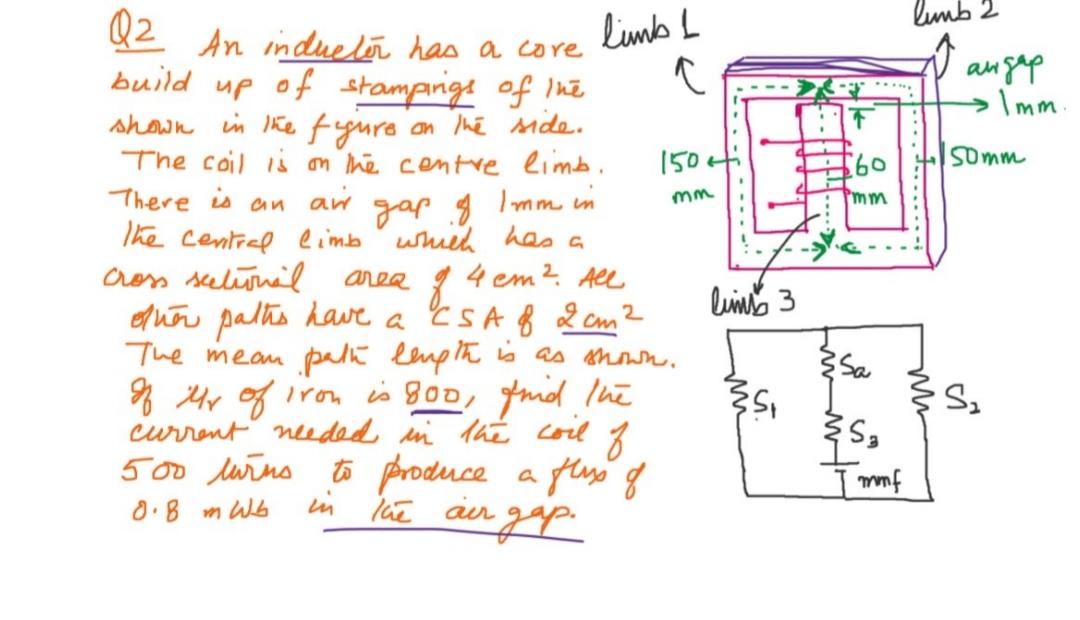 Q2 An inductor has a core
build up of stampings of the
shown in the figure on the side.
The coil is on the centre limb.
There is an air gap of 1mm in
the central limb which has a
cross sectional area of 4 cm². All
other paths have a CSA of 2 cm²
The mean path length is as shown.
If μr of iron is 800, find the
current needed in the coil of
500 turns to produce a flux of
0.8 mWb in the air gap.
limb 1
limb 2
air gap
1mm.
150
mm
150mm
60
mm
limb 3
Sa
S1
S2
S3
mmf